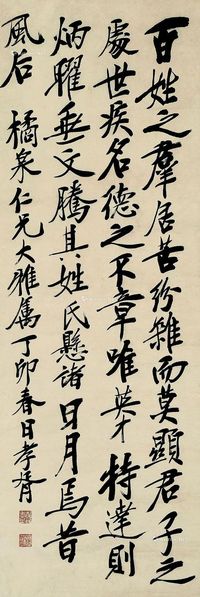 百姓之群居苦紛雜而莫顯君子之
處世疾名德之不章唯英才特達則
炳曜垂文騰其姓氏懸諸日月焉昔
風后 橘泉仁兄大雅屬丁卯春日孝胥